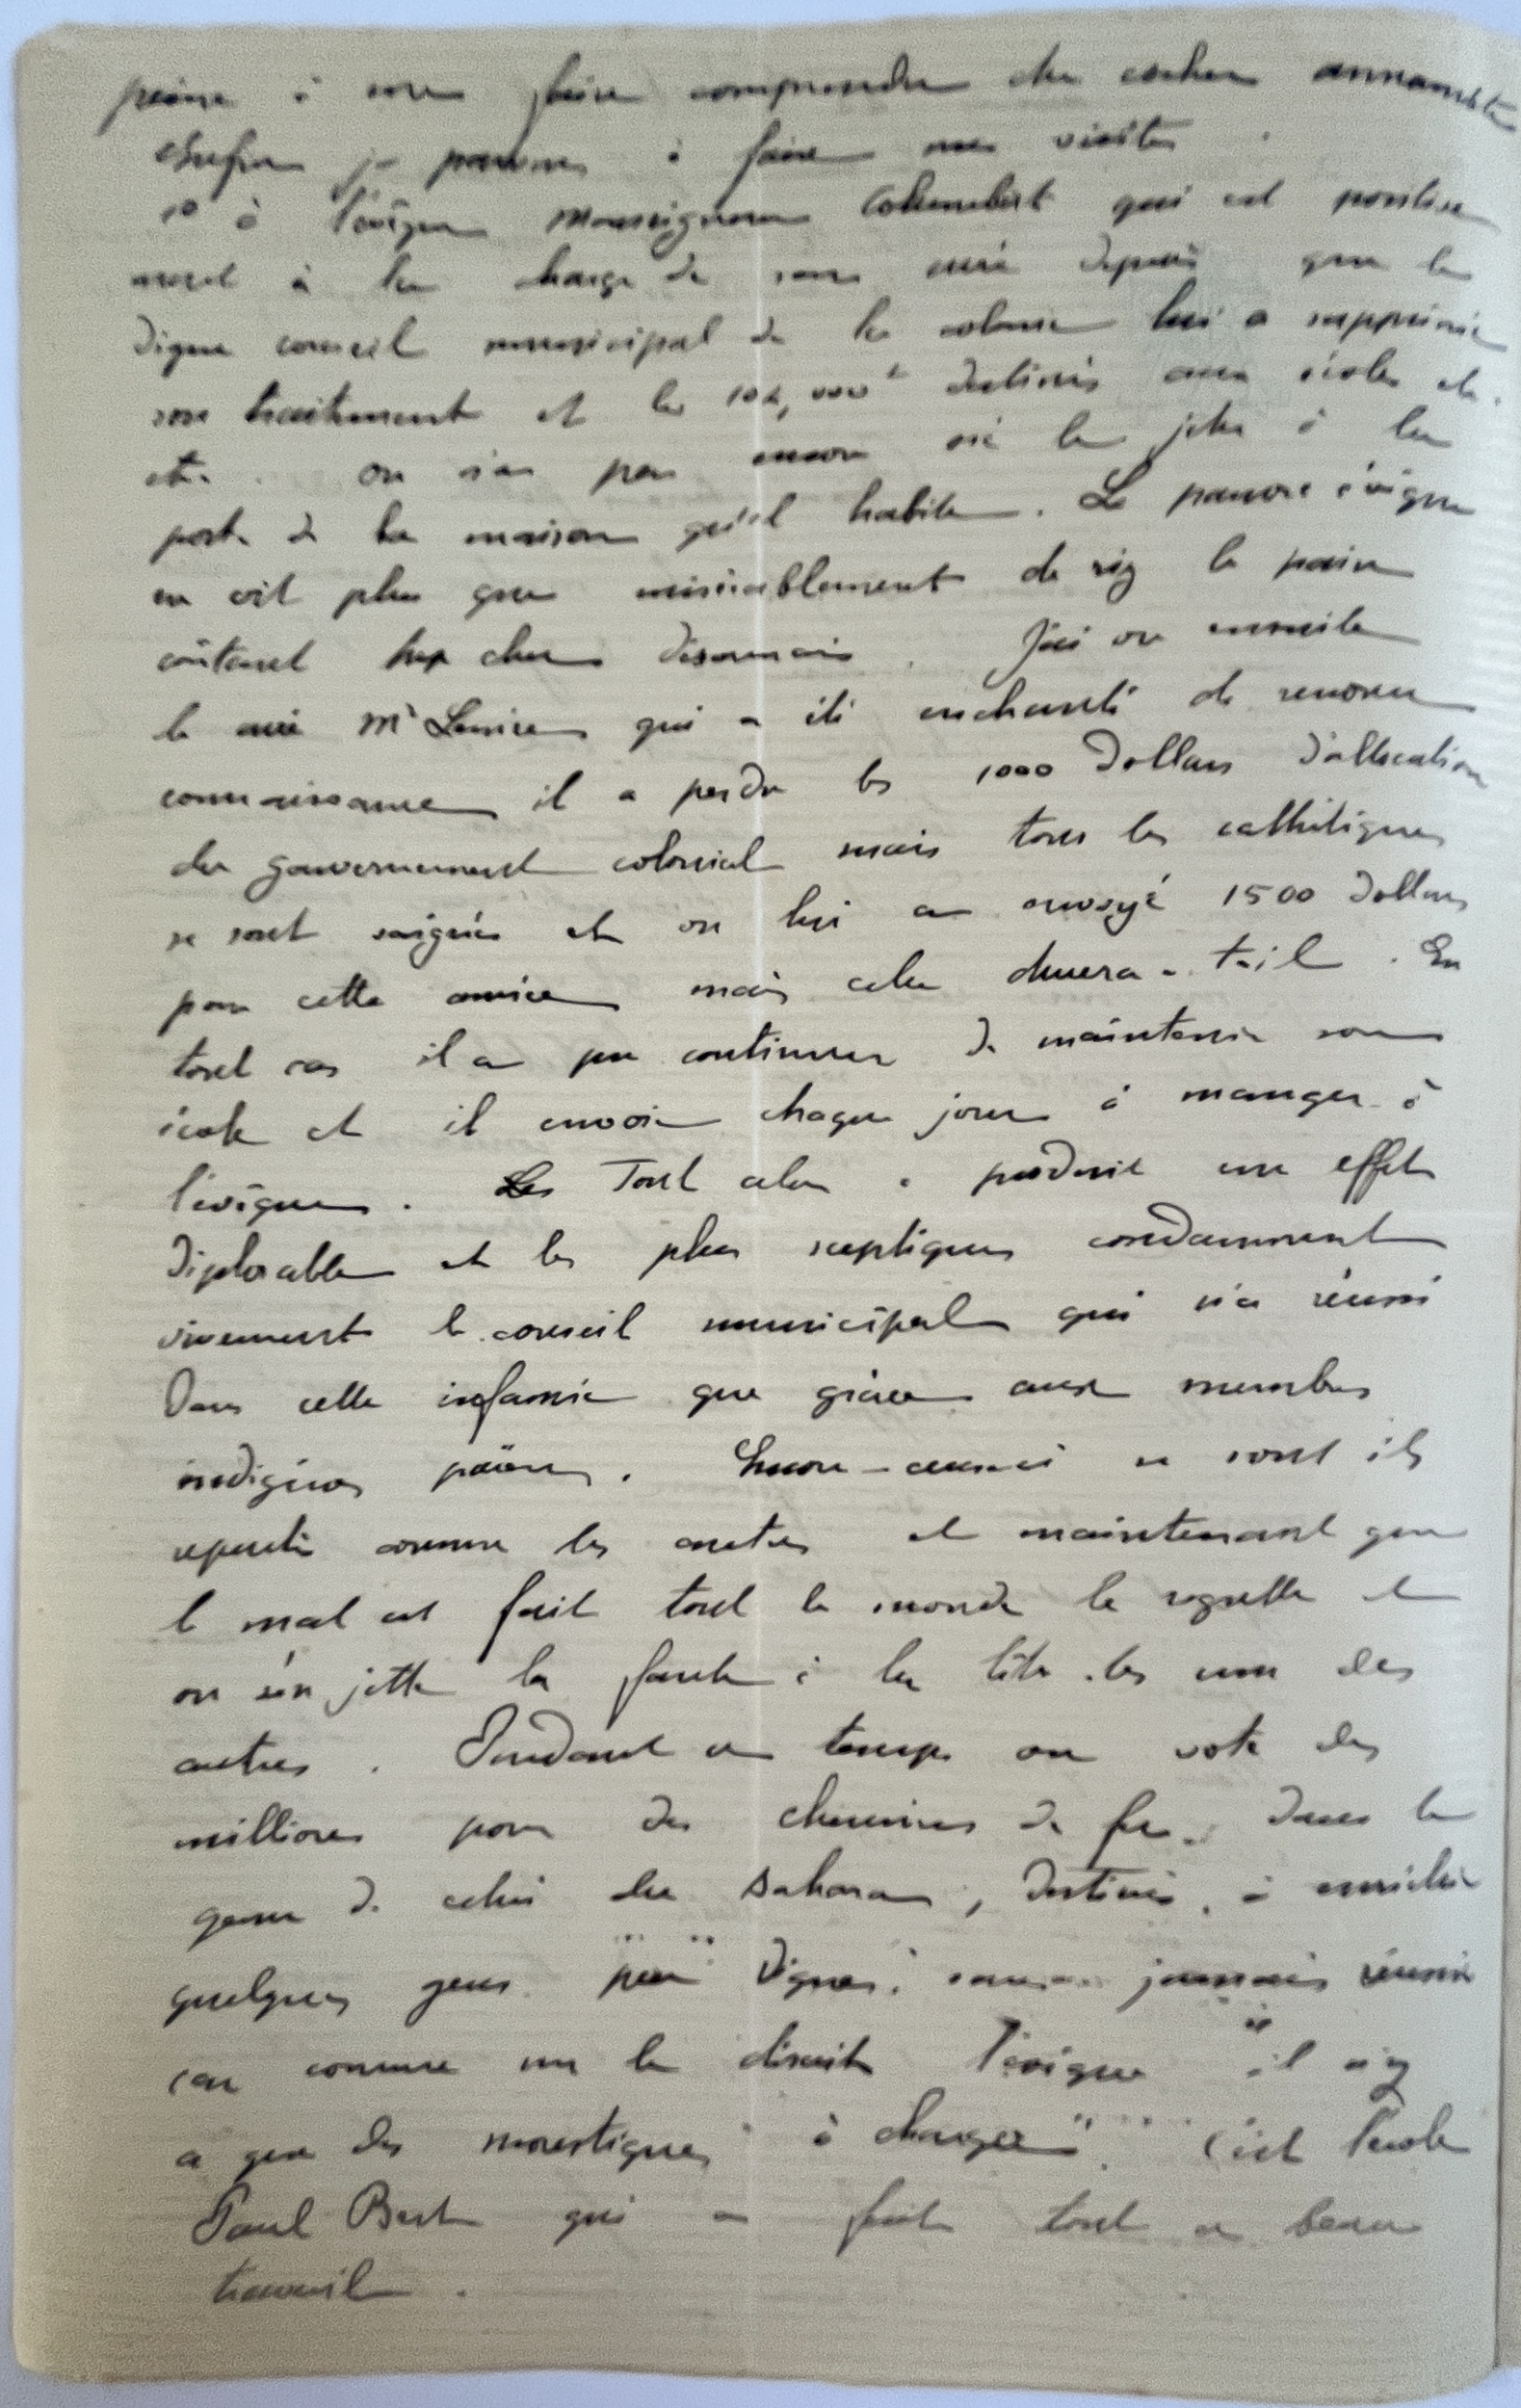 peine à me faire comprendre du cocher annamite
Enfin je parvins à faire mes visites.
1º à l'évêque Monseigneur Colombert qui est positive
ment à la charge de son curé depuis que le
digne conseil municipal de la colonie lui a supprimé
son traitement et les destinés aux écoles et.
etc. On n'a pas encore osé le jeter à la
porte de la maison qu'il habite. Le pauvre évêque
ne vit plus que misérablement de riz le pain
coûtant trop cher désormais. J'ai vu ensuite
le curé Mr qui a été enchanté de renouer
connaissance il a perdu les 1000 Dollars d'allocation
du gouvernement colonial mais tous les catholiques
se sont saignés et on lui a envoyé 1500 Dollars
pour cette année mais cela durera-t-il. En
tout cas il a pu continuer de maintenir son
école et il envoie chaque jour à manger à
l'évêque. Tout cela a produit un effet
déplorable et les plus sceptiques condamnent
vivement le conseil municipal qui n'a réussi
dans cette infamie que grâce aux membres
indigènes païens. Encore ceux-ci se sont ils
repentis comme les autres et maintenant que
le mal est fait tout le monde le regrette et
on s'en jette la faute à la tête les uns des
autres. Pendant ce temps on vote des
millions pour des chemins de fer dans le
genre de celui du Sahara, destinés à enrichir
quelques gens peu dignes, sans jamais réussir
car comme me le disait l'évêque "il n'y
a que des moustiques à charger". C'est l'école
Paul Bert qui a fait tout ce beau
travail.